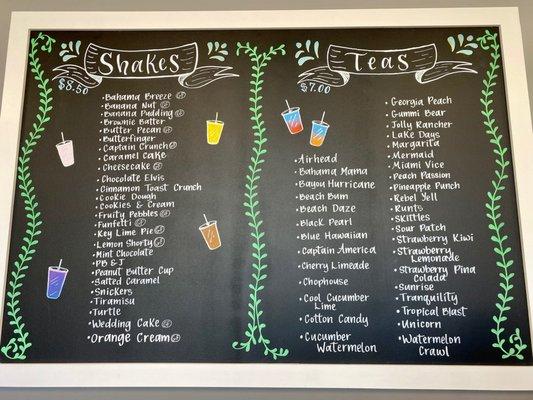 Shakes
$8.50
•Bahama Breeze
•Banana Nut
•Banana Pudding
•Brownie Batter
•Butter Pecan
•Butterfinger
•Captain Crunch
•Caramel Cake
•Cheesecake
•Chocolate Elvis
•Cinnamon Toast Crunch
•Cookie Dough
•Cookies & Cream
•Fruity Pebbles
•Funfetti
•Key Lime Pie
•Lemon Shorty
•Mint Chocolate
•PB & J
•Peanut Butter Cup
•Salted Caramel
•Snickers
•Tiramisu
•Turtle
•Wedding Cake
•Orange Cream
Teas
$7.00
•Airhead
•Bahama Mama
•Bayou Hurricane
•Beach Bum
•Beach Daze
•Black Pearl
•Blue Hawaiian
•Captain America
•Cherry Limeade
•Chophouse
•Cool Cucumber
Lime
•Cotton Candy
•Cucumber
Watermelon
•Georgia Peach
•Gummi Bear
•Jolly Rancher
•Lake Days
•Margarita
•Mermaid
•Miami Vice
•Peach Passion
•Pineapple Punch
•Rebel Yell
•Runts
•Skittles
•Sour Patch
•Strawberry Kiwi
•Strawberry
Lemonade
•Strawberry Pina
Colada
•Sunrise
•Tranquility
•Tropical Blast
•Unicorn
•Watermelon
Crawl